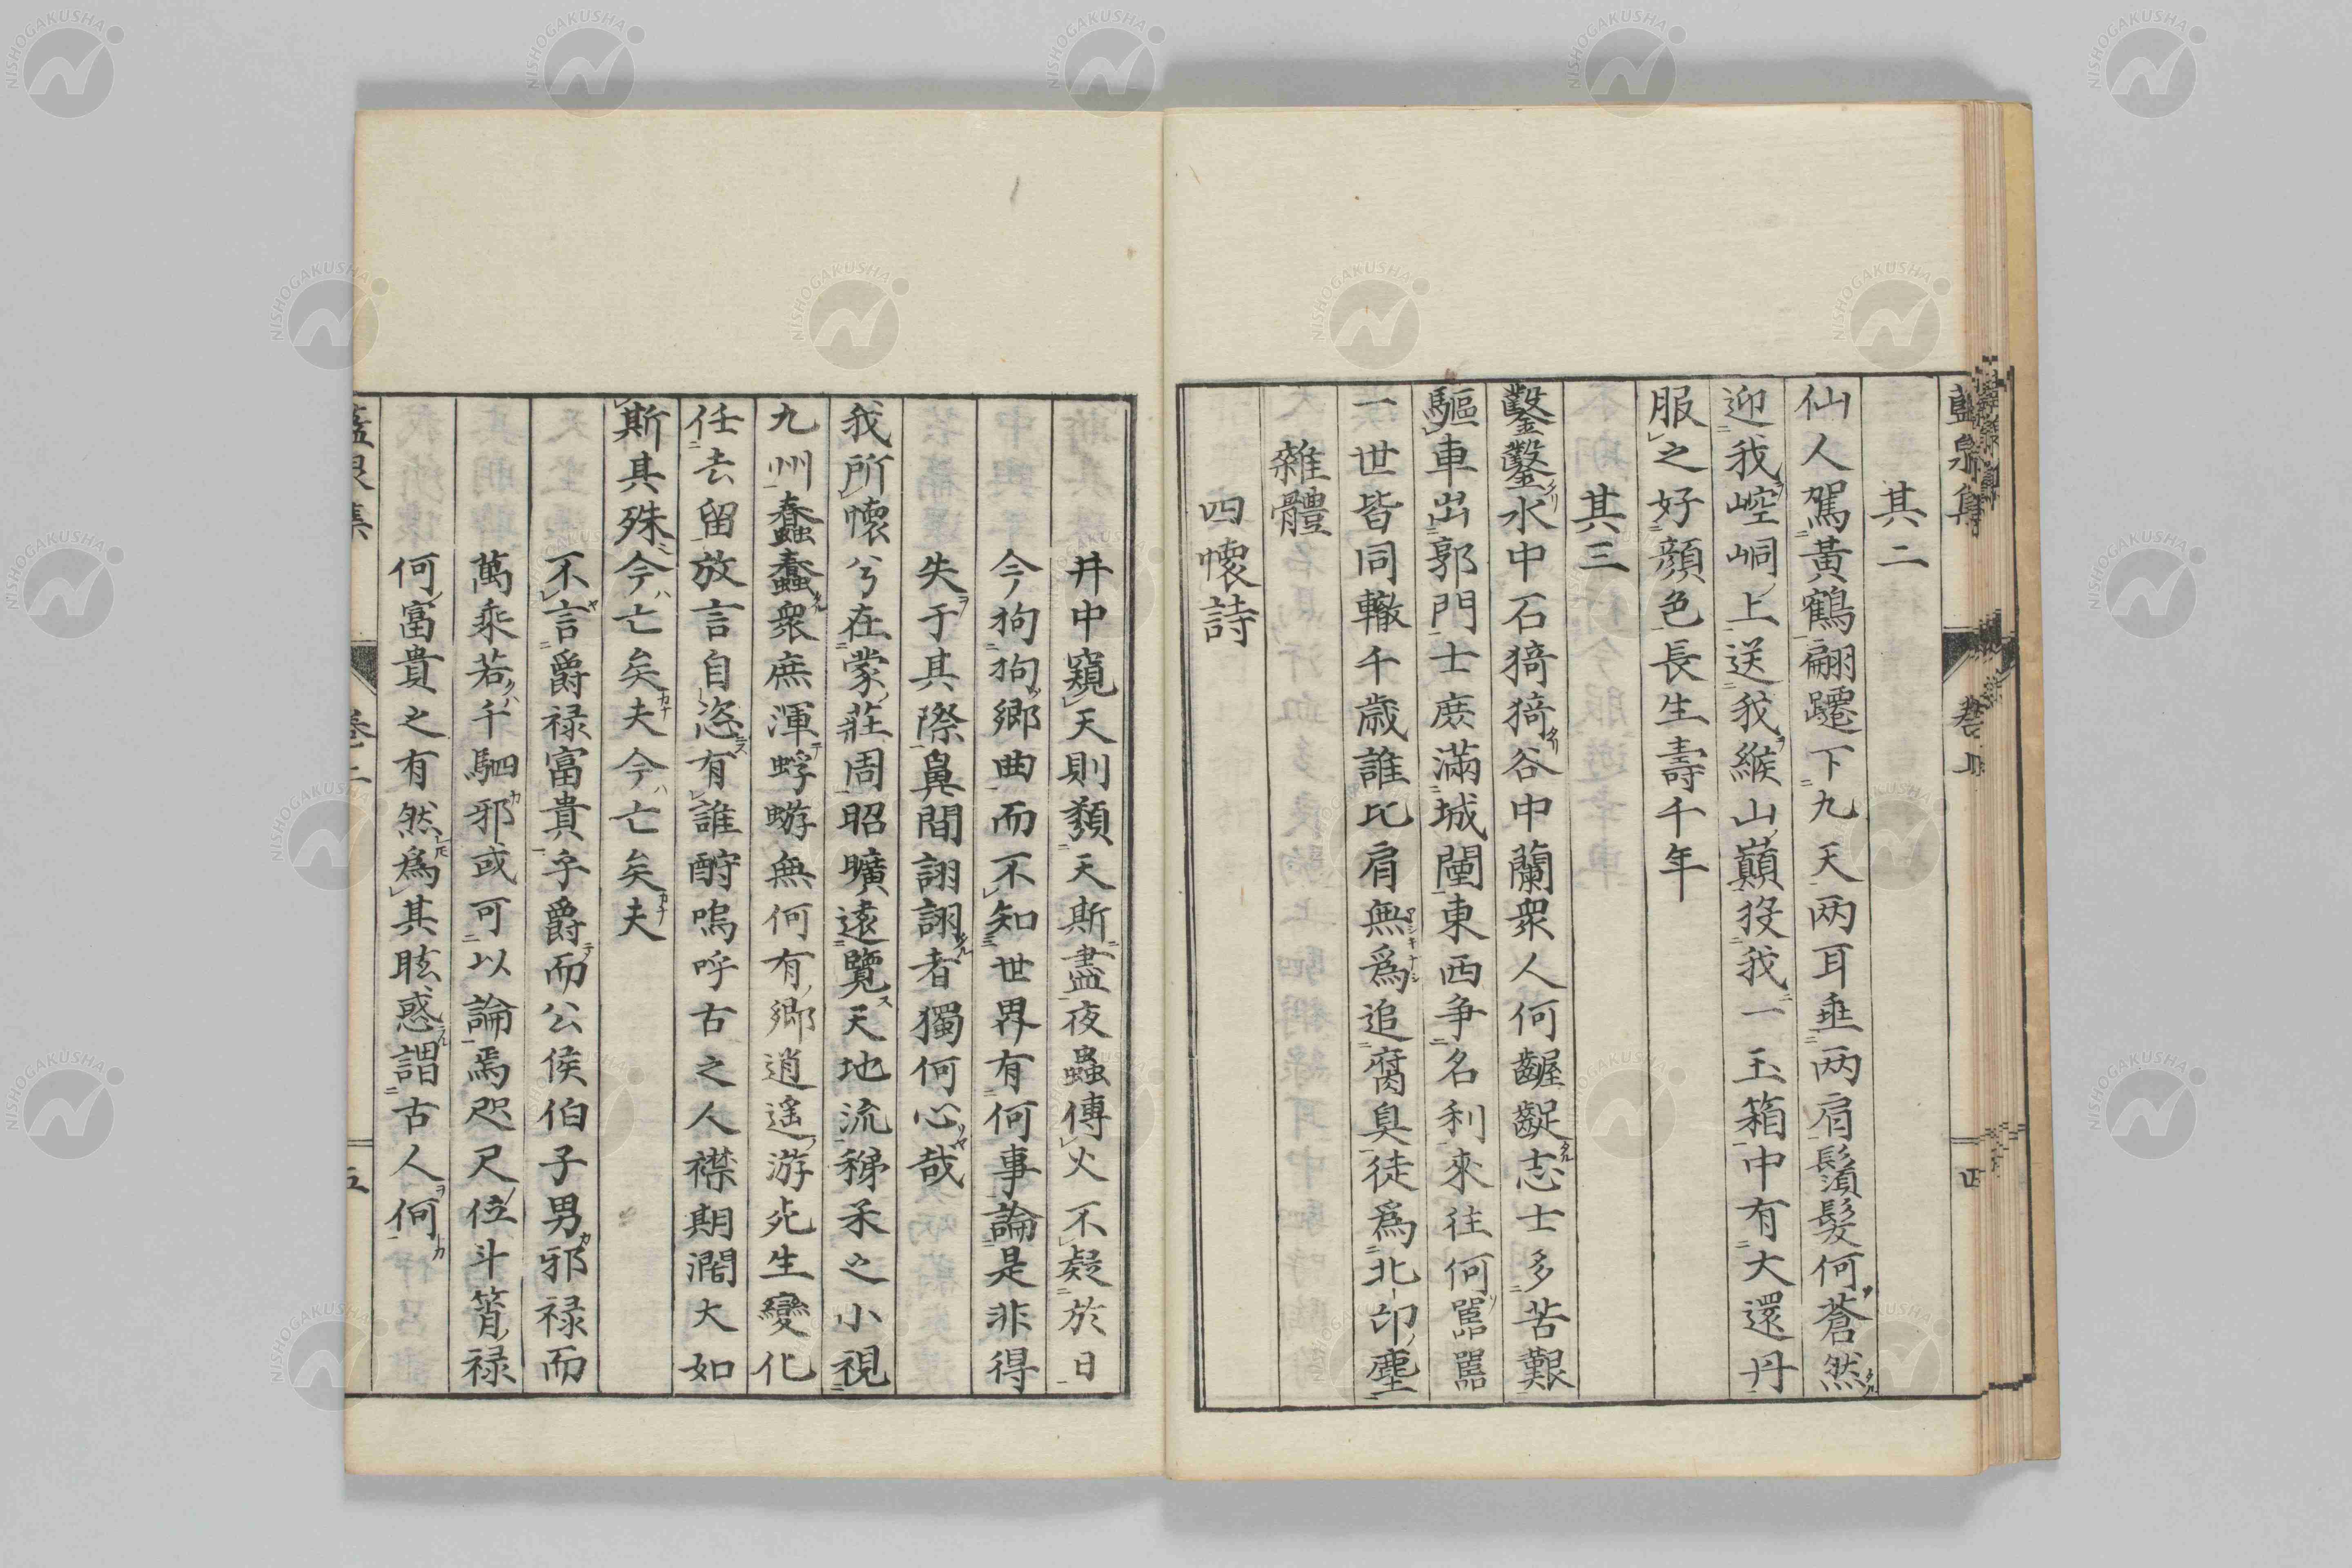 其二
仙人駕黃鶴翩躚下九天两耳垂两肩鬚髮何蒼然
迎我崆峒上送我緱山巔授我一玉箱中有大還丹
服之好顔色長生壽千年
其三
鑿鑿水中石猗猗谷中蘭衆人何齷齪志士多苦艱
驅車出郭門士庶滿城闉東西争名利來往何嚚嚚
一世皆同轍千歳誰比肩無爲追腐臭徒爲北邙塵
雜體
四懷詩
井中窺天則纇天斯盡夜蟲傳火不疑於日
今拘拘鄉曲而不知世界有何事論是非得
失于其際鼻間詡詡者獨何心哉
我所懷兮在蒙莊周昭曠遠覽天地流稊禾之小視
九州蠢蠢衆庶渾蜉蝣無何有鄉逍遥游死生變化
任去留放言自恣有誰酧嗚呼古之人襟期濶大如
斯其殊今亡矣夫今亡矣夫
不言爵禄富貴乎爵而公侯伯子男邪禄而
萬乘若千駟邪或可以論焉咫尺位斗筲禄
何富貴之有然爲其眩惑謂古人何